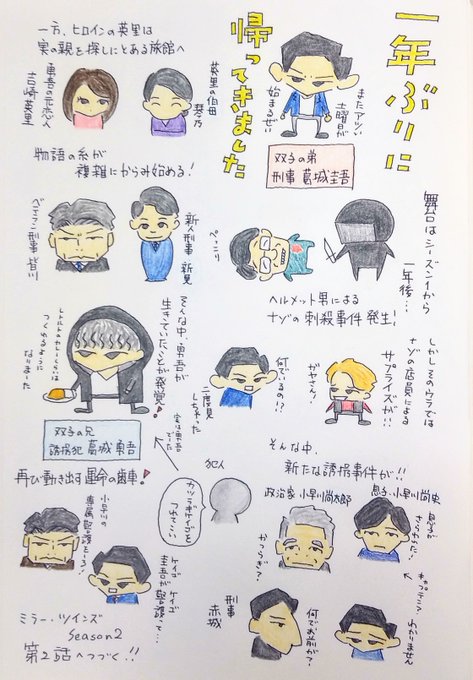 一年ぶりに
帰ってきました
またアツい
土曜日が
始まるぜい
双子の弟
刑事 葛城圭吾
舞台はシーズン1から
一年後…
ヘルメット男による
ナゾの刺殺事件発生!
ぺっこり
しかしそのウラでは
ナゾの店員による
サプライズが!!
ガヤさん!
何でいるの!?
二度見
しちゃった
そんな中、
新たな誘拐事件が!!
政治家 小早川尚太郎
息子・小早川尚史
かつらぎ?
わかりません
刑事
赤城
何でお前が?
犯人
カツラギケイゴを
つれてこい
一方、ヒロインの英里は
実の親を探しにとある旅館へ
勇吾の元恋人
吉崎英里
英里の伯母
琴乃
物語の糸が
複雑にからみ始める!
ベテラン刑事 皆川
新人刑事 新見
そんな中、勇吾が
生きていたことが発覚!
レトルトのカレーくらいは
つくれるように
なりました
双子の兄
誘拐犯 葛城勇吾
再び動き出す運命の歯車!
小早川の
専属警護とーる!
ケイゴ ケイゴ
圭吾が警護って…
ミラー・ツインズ
Season2
第2話へつづく!!